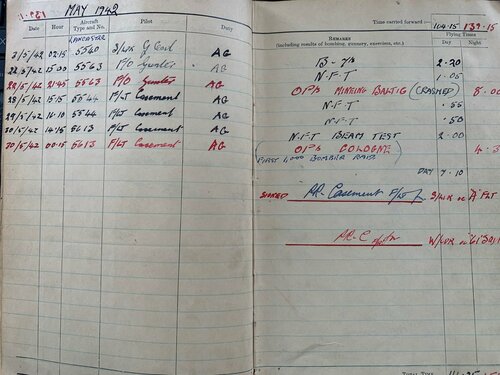 MAY 1942
Date Hour Aircraft Type and No. Pilot Duty
LANCASTER
2/5/42 02.15 5540 AG
22/5/42 15.00 5563 P/O AG
22/5/42 21.45 5563 P/O AG
28/5/42 15.15 5544 F/LT Casement AG
29/5/42 14.10 5544 F/LT Casement AG
30/5/42 14.45 5613 F/LT Casement AG
30/5/42 00.15 5613 F/LT Casement AG
Time carried forward:— 104.15 139.15
Remarks (including results of bombing, gunnery, exercises, etc.) Flying Times
Day Night
2.20
N.F.T 1.05
OPS MINEING BALTIC (CRASHED) 8.00
N.F.T .55
N.F.T .50
N.F.T BEAM TEST 2.00
OPS COLOGNE 4.3
(FIRST 1,000 BOMBER RAID)
DAY 7.10
SIGNED Casement F/LT S/LDR oc "A" FLT
W/CDR oc 61 SQN
Total Time